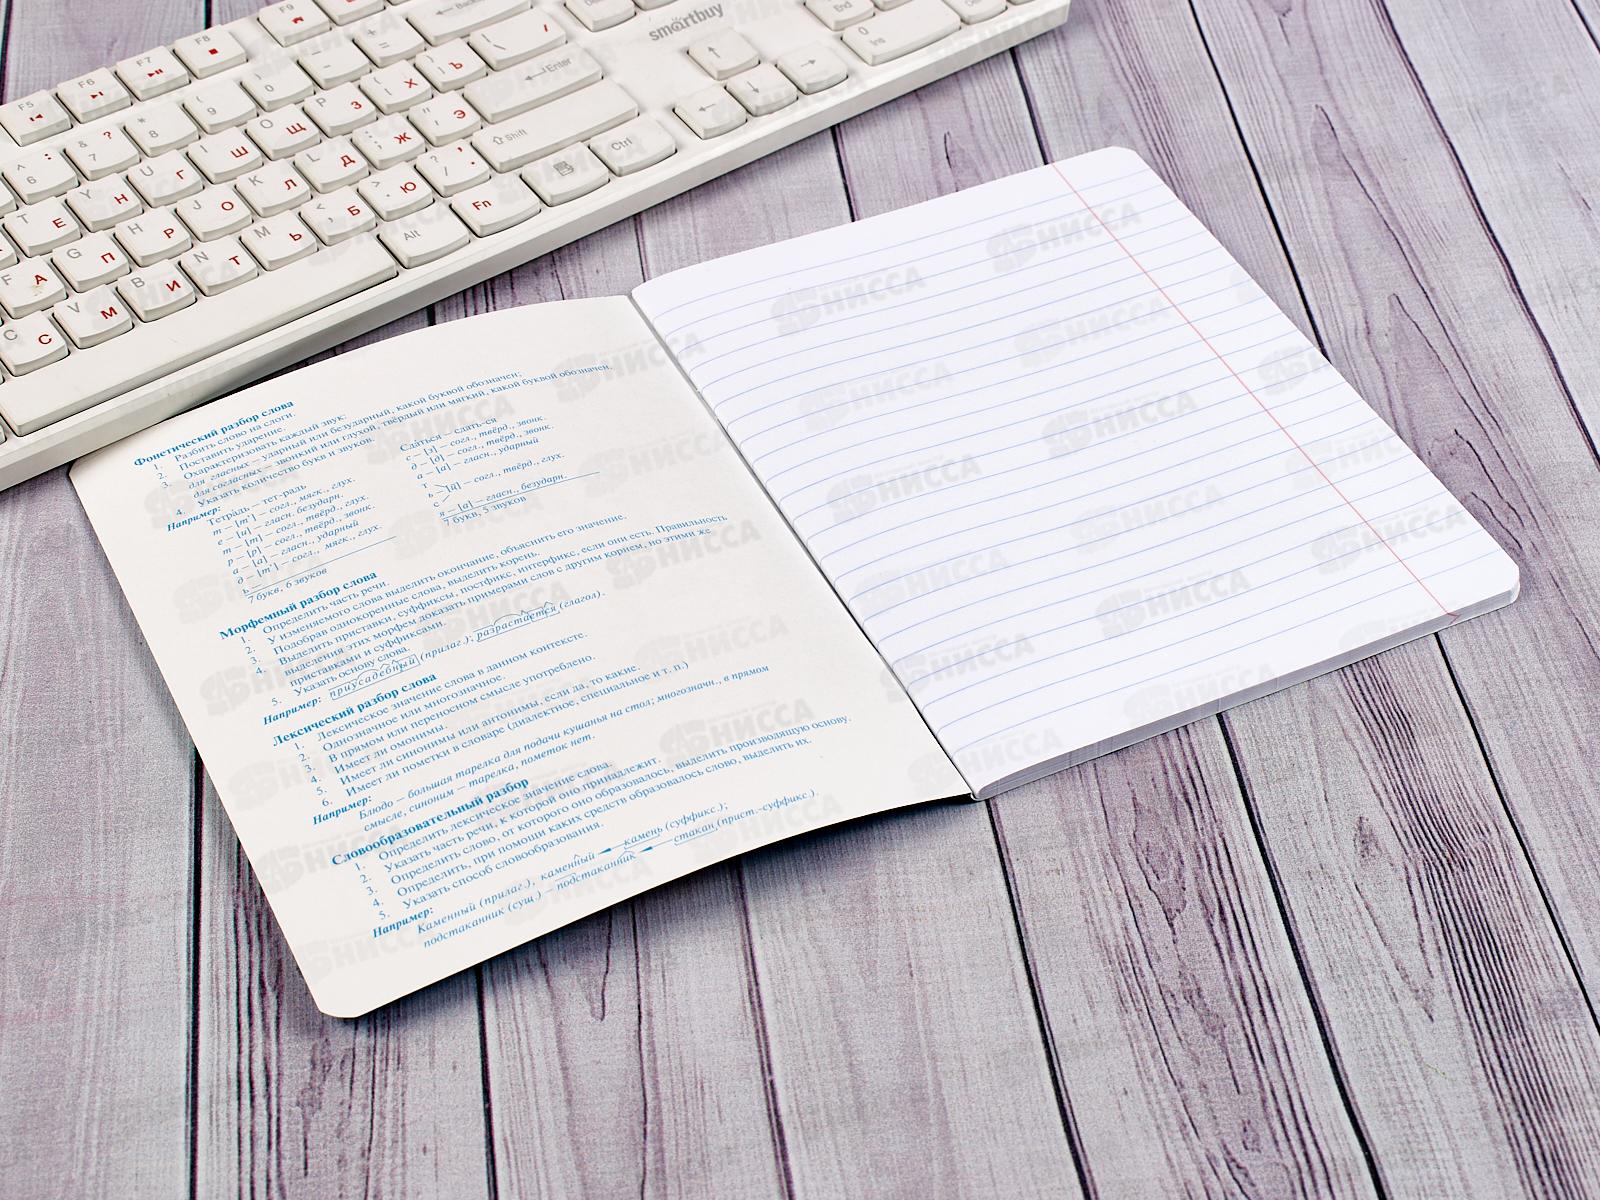 smartbuy
Backspace
Enter
Shift
Ctrl
Alt
Fn
F5
F6
F7
F8
F9
End
Ins
Фонетический разбор слова
1. Разбить слово на слоги.
2. Поставить ударение.
3. Охарактеризовать каждый звук:
для гласных – ударный или безударный, какой буквой обозначен;
для согласных – звонкий или глухой, твёрдый или мягкий, какой буквой обозначен.
4. Указать количество букв и звуков.
Например:
Тетрадь – тет-радь
т – [т'] – согл., мягк., глух.
е – [и] – гласн. безударн.
т – [т] – согл., твёрд., глух.
р – [р] – согл., твёрд., звонк.
а – [а] – гласн., ударный
д – [т'] – согл., мягк., глух.
ь –
7 букв, 6 звуков
Сдаться – сдать-ся
с – [з] – согл., твёрд., звонк.
д – [д] – согл., твёрд., звонк.
а – [а] – гласн., ударный
т
ь – [ц] – согл., твёрд., глух.
с
я – [а] – гласн., безударн.
7 букв, 5 звуков
Морфемный разбор слова
1. Определить часть речи.
2. У изменяемого слова выделить окончание, объяснить его значение.
3. Подобрав однокоренные слова, выделить корень.
4. Выделить приставки, суффиксы, постфикс, интерфикс, если они есть. Правильность
выделения этих морфем доказать примерами слов с другим корнем, но этими же
приставками и суффиксами.
5. Указать основу слова.
Например: приусадебный (прилаг.); разрастается (глагол).
Лексический разбор слова
1. Лексическое значение слова в данном контексте.
2. Однозначное или многозначное.
3. В прямом или переносном смысле употреблено.
4. Имеет ли омонимы.
5. Имеет ли синонимы или антонимы, если да, то какие.
6. Имеет ли пометки в словаре (диалектное, специальное и т. п.)
Например:
Блюдо – большая тарелка для подачи кушанья на стол; многозначн., в прямом
смысле, синоним – тарелка, пометок нет.
Словообразовательный разбор
1. Определить лексическое значение слова.
2. Указать часть речи, к которой оно принадлежит.
3. Определить слово, от которого оно образовалось, выделить производящую основу.
4. Определить, при помощи каких средств образовалось слово, выделить их.
5. Указать способ словообразования.
Например:
Каменный (прилаг.), каменный камень (суффикс.);
подстаканник (сущ.) – подстаканник стакан (прист.-суффикс.).
НИССА